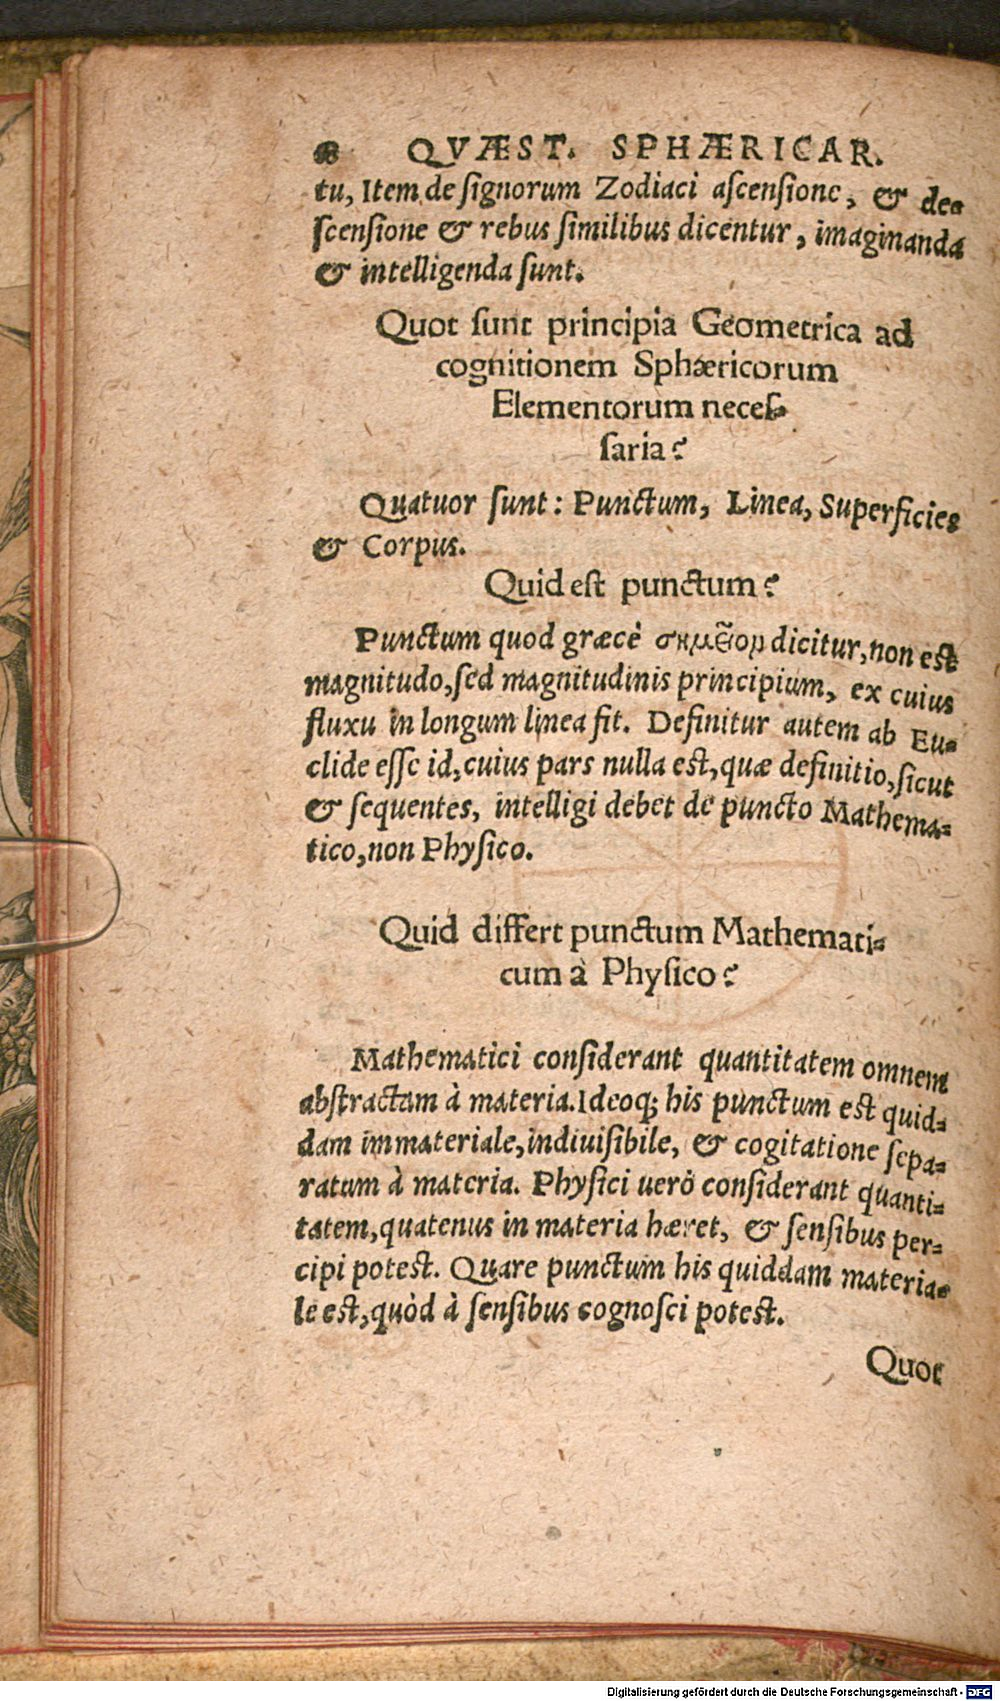 QVÆST. SPHÆRICAR.
tu, Item de ſignorum Zodiaci aſcenſione, & de-
ſcenſione & rebus ſimilibus dicentur, imaginanda
& intelligenda ſunt.
Quot ſunt principia Geometrica ad
cognitionem Sphæricorum
Elementorum neceſ-
ſaria?
Quatuor ſunt: Punctum, Linea, Superficies
& Corpus.
Quid eſt punctum?
Punctum quod græcè σημεῖον dicitur, non eſt
magnitudo, ſed magnitudinis principium, ex cuius
fluxu in longum linea fit. Definitur autem ab Eu-
clide eſſe id, cuius pars nulla eſt, quæ definitio, ſicut
& ſequentes, intelligi debet de puncto Mathema-
tico, non Phyſico.
Quid differt punctum Mathemati-
cum à Phyſico?
Mathematici conſiderant quantitatem omnem
abſtractam à materia. Ideoq; his punctum eſt quid-
dam immateriale, indiuiſibile, & cogitatione ſepa-
ratum à materia. Phyſici uerò conſiderant quanti-
tatem, quatenus in materia hæret, & ſenſibus per-
cipi poteſt. Quare punctum his quiddam materia-
le eſt, quòd à ſenſibus cognoſci poteſt.
Quot
Digitalisierung gefördert durch die Deutsche Forschungsgemeinschaft - DFG